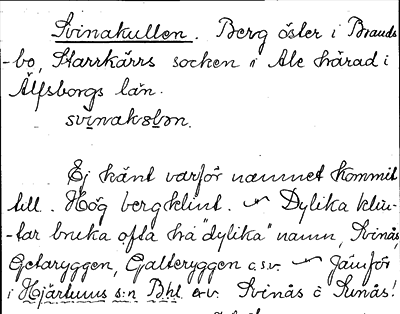 Svinakullen. Berg öster i Brands
-bo, Starrkärrs socken i Ale härad i
Älfsborgs län.
svinakɷlən.
Ej känt varför namnet kommit
till. Hög bergklint. ~ Dylika klin-
-tar bruka ofta ha "dylika" namn, Svinås,
Getaryggen, Galteryggen o.s.v. ~ Jämför
i Hjärtums s:n Bhl. a.v. Svinås o